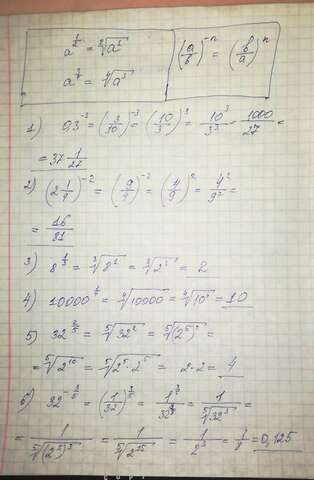 a^(1/2) = ²√a¹
a^(3/4) = ⁴√a³
(a/b)^(-n) = (b/a)^n
1) 0,3^(-3) = (3/10)^(-3) = (10/3)^3 = 10³/3³ = 1000/27 =
= 37 1/27
2) (2 1/4)^(-2) = (9/4)^(-2) = (4/9)^2 = 4²/9² =
= 16/81
3) 8^(1/3) = ³√8¹ = ³√2³ = 2
4) 10000^(1/4) = ⁴√10000 = ⁴√10⁴ = 10
5) 32^(2/5) = ⁵√32² = ⁵√(2⁵)² =
= ⁵√2¹⁰ = ⁵√2⁵·2⁵ = 2·2 = 4
6) 32^(-3/5) = (1/32)^(3/5) = 1^(3/5)/32^(3/5) = 1/⁵√32³ =
= 1/⁵√(2⁵)³ = 1/⁵√2¹⁵ = 1/2³ = 1/8 = 0,125